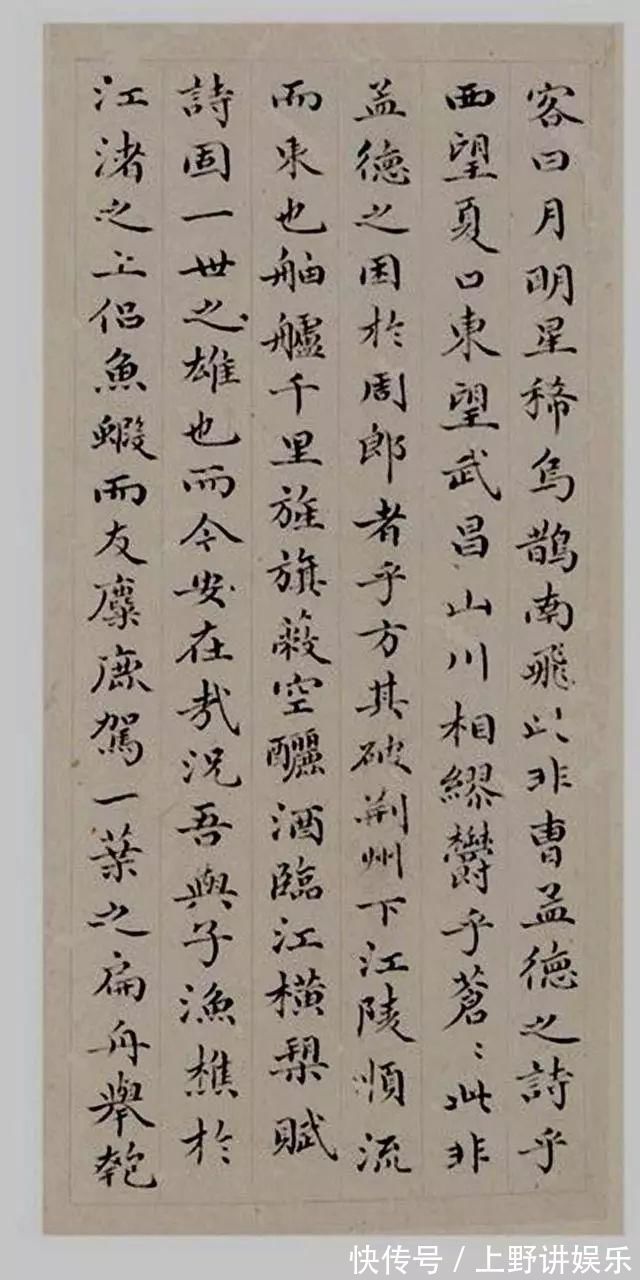 客曰月明星稀烏鵲南飛此非曹孟德之詩乎
西望夏口東望武昌山川相繆鬱乎蒼〻此非
孟德之困於周郎者乎方其破荊州下江陵順流
而東也舳艫千里旌旗蔽空釃酒臨江橫槊賦
詩固一世之雄也而今安在哉況吾與子漁樵於
江渚之上侶魚蝦而友麋鹿駕一葉之扁舟舉匏
快传号 / 上野讲娱乐